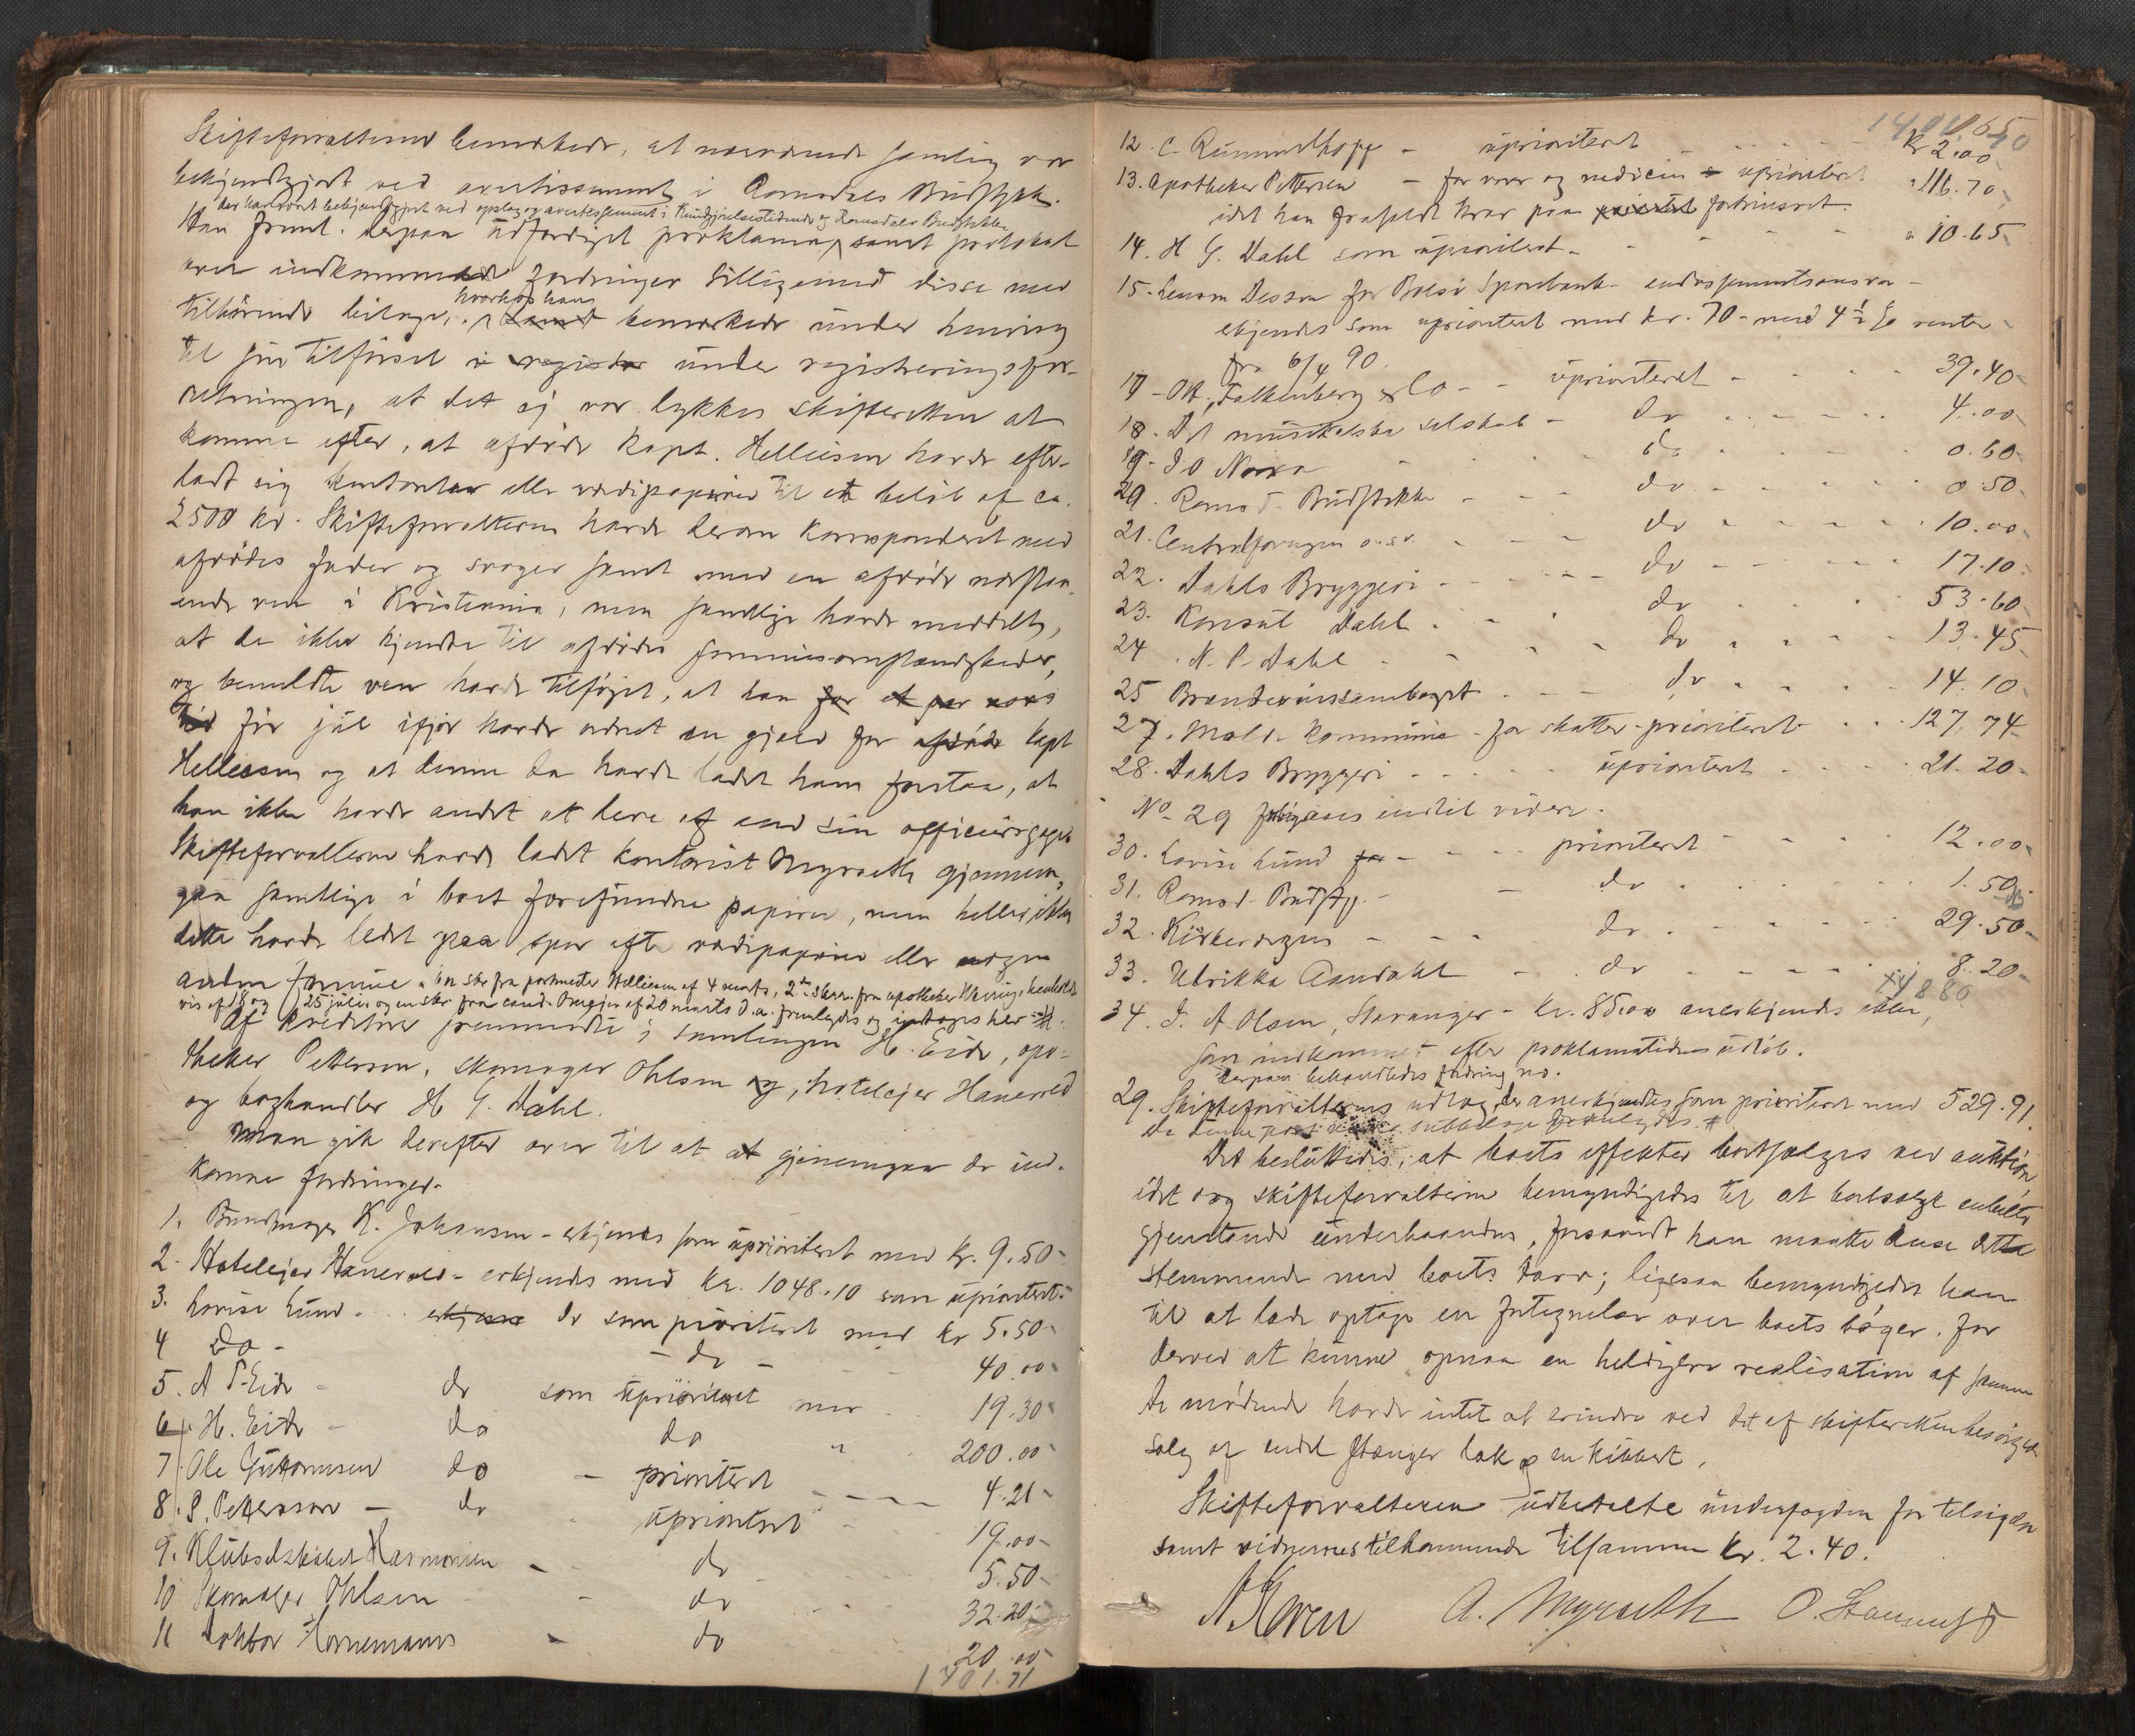 Skifteforvalteren bemærkede, at nærværende samling var
bekjendtgjort ved avertissement i Romsdals Budstikke.
der har været bekjendtgjort ved opslag og avertissement i Kundgjørelsestidende og Romsdals Budstikke
Han freml. derpaa udfærdiget proklama, samt protokol
over indkommende fordringer tilligemed disse med
tilhørende bilage, hvorhos han bemærkede under henvisning
til sin tilførsel i under registreringsfor-
retningen, at det ej var lykkes skifteretten at
komme efter, at afdøde kapt. Helliesen havde efter-
ladt sig kontanter eller værdipapirer til et beløb af ca.
2500 kr. Skifteforvalteren havde derom korresponderet med
afdødes fader og svoger samt med en afdøde nærstaa-
ende ven i Kristiania, men samtlige havde meddelt,
at de ikke kjendte til afdødes formuesomstændigheder,
og bemeldte ven havde tilføjet, at han for et par aars
tid før jul ifjor havde ordnet en gjæld for afdøde kapt
Helliesen og at denne da havde ladet ham forstaa, at
han ikke havde andet at leve af end sin officersgage
Skifteforvalteren havde ladet kontorist Myrseth gjennem-
gaa samtlige i boet forefundne papirer, men heller ikke
dette havde ledet paa spor efter værdipapirer eller nogen
anden formue. En skr. fra postmester Helliesen af 4 marts, 2de skr. fra apotheker Hærring, henholds-
vis af 18 og 25 juli og en skr. fra cand. af 20 marts d.a. fremlagdes og indtages her #.
Af kreditorer fremmødte i samlingen H. Eide, apo-
theker Petterson, skomager Ohlsen og, hotelejer Hanevold
og boghandler H G. Dahl.
Man gik derefter over til at at gjennemgaa de ind-
komne fordringer.
1. Bundtmager K. Johansen - erkjendes som uprioriteret med kr. 9.50
2. Hotelejer Hanevold - erkjendes med kr. 1048.10 som uprioritert.
3. Lovise Lund - do som prioriteret med kr 5.50
4 Do - - do - 40.00
5. A P. Eide - do som uprioritæret med 19.30
6. H. Eide - do do " 200.00
7. Ole Guttormsen do - prioriteret - 4.21
8. P. Petterson - do uprioriteret 19.00
9. Klubselskabet Harmonien - do 5.50
10 Skomager Ohlsen - do 32.20
11 Doktor Hornemanns - do 20.00
1401.71
1400.65
12. C. Rummelhoff - uprioriteret Kr 2.00
13. Apotheker Petterson - for varer og medicin uprioriteret " 116.70
idet han frafaldt krav paa fortrinsret.
14. H G. Dahl som uprioritert - " 10.65
15. Lensm Dessen for Bolsø Sparebank - endossementsansvar -
erkjendes som uprioritert med kr. 70 - med 4½ % rente
fra 6/4 90.
17 - Ott, Falkenberg & Co - uprioriteret - 39.40
18. Det musikalske selskab - do 4.00
19. I O Næra - do 0.60
20. Romsd. Budstikke - do 0.50
21. Centralforeningen o.s.v. - do 10.00
22. Dahls Bryggeri - do 17.10
23. Konsul Dahl - do 53.60
24. N. P. Dahl - do 13.45
25 Brændevinssamlaget - do 14.10
27. Molde kommune - for skatter - prioriteret - 127.74
28. Dahls Bryggeri - uprioriteret - 21.20
No. 29 indtil videre.
30. Lovise Lund for - prioriteret - 12.00
31. Romsd. Budst. - do 1.50
32. Kirkeværgen - do 29.50
33. Ulrikka Aandahl - do 8.20
34. I. A Olsen, Stavanger - kr. 85.00 anerkjendes ikke,
som indkommet efter proklamatidens udløb.
Derpaa behandledes fordring no.
29. Skifteforvalterens udlæg, der anerkjendtes som prioriteret med 529.91
Det besluttedes, at boets effekter bortsælges ved auktion
idet dog skifteforvalteren bemyndigedes til at bortsælge enkelte
gjenstande underhaanden, forsaavidt han maatte anse dette
stemmende med boets tarv; ligesaa bemyndigedes han
til at lade optage en fortegnelse over boets bøger, for
derved at kunne opnaa en heldigere realisation af samme
De mødende havde intet at erindre ved det af skifteretten besørgede
salg af endel stænger lak og en kikkert.
Skifteforvalteren udbetalte underfogden for tilsigelse
samt vidnernes tilkommende tilsammen kr. 2.40.
A. Myrseth